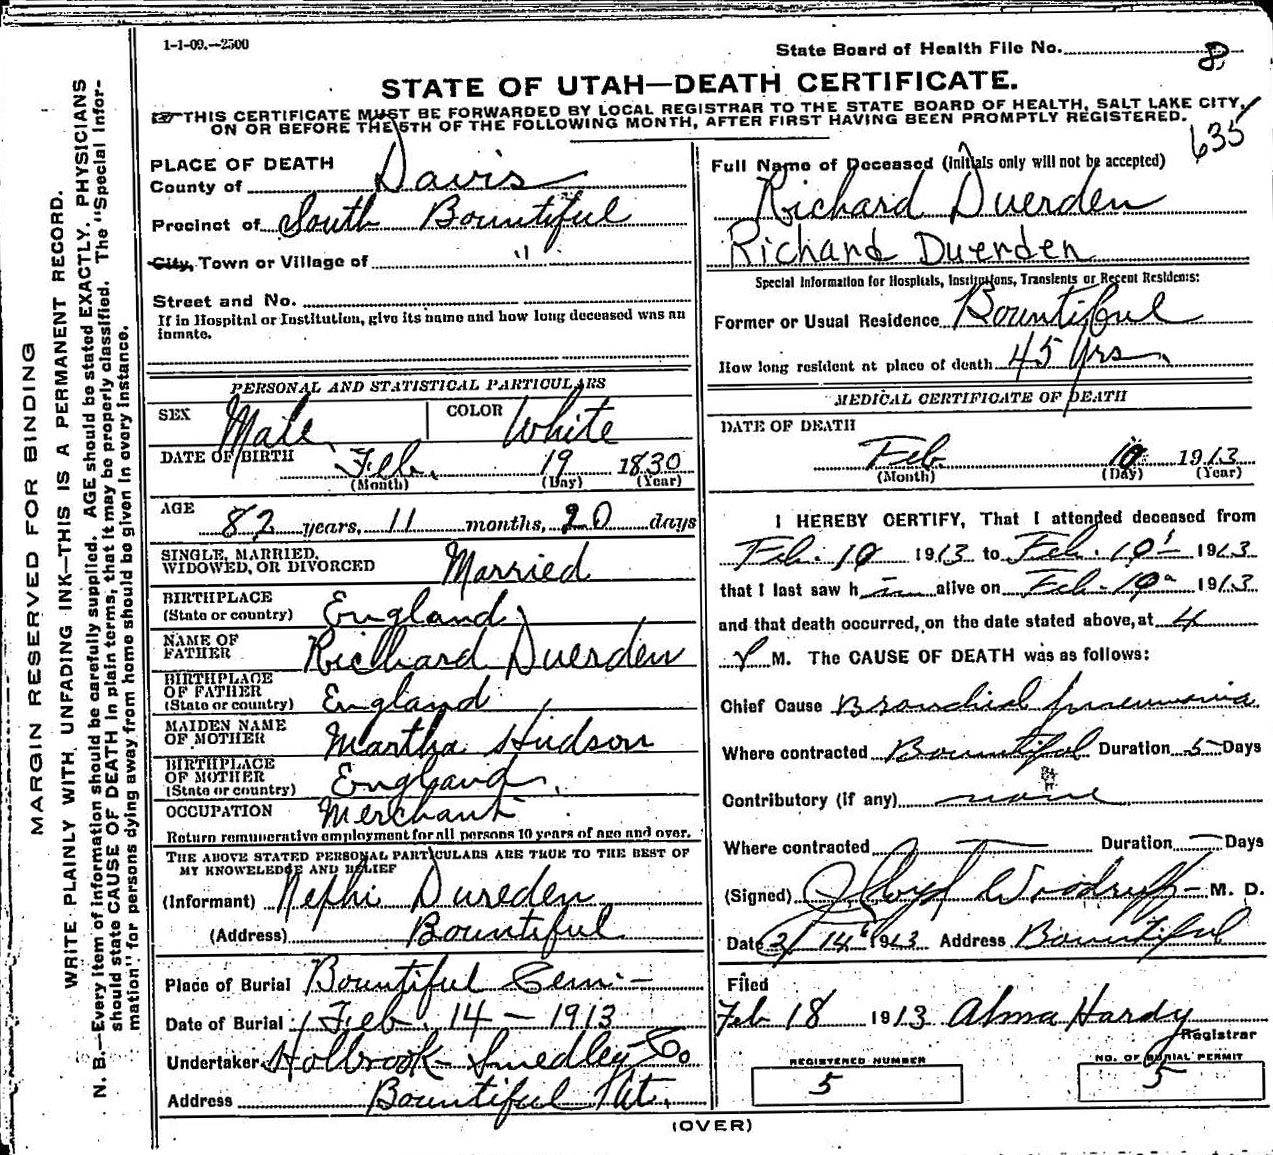 1-1-09.--2500
State Board of Health File No. 8
STATE OF UTAH—DEATH CERTIFICATE.
THIS CERTIFICATE MUST BE FORWARDED BY LOCAL REGISTRAR TO THE STATE BOARD OF HEALTH, SALT LAKE CITY,
ON OR BEFORE THE 5TH OF THE FOLLOWING MONTH, AFTER FIRST HAVING BEEN PROMPTLY REGISTERED.
635
MARGIN RESERVED FOR BINDING
WRITE PLAINLY WITH UNFADING INK—THIS IS A PERMANENT RECORD.
N. B.—Every item of information should be carefully supplied. AGE should be stated EXACTLY. PHYSICIANS
should state CAUSE OF DEATH in plain terms, that it may be properly classified. The "Special Infor-
mation" for persons dying away from home should be given in every instance.
PLACE OF DEATH
County of Davis
Precinct of South Bountiful
City, Town or Village of "
Street and No.
If in Hospital or Institution, give its name and how long deceased was an
inmate.
PERSONAL AND STATISTICAL PARTICULARS
SEX Male COLOR White
DATE OF BIRTH Feb. 19 1830
(Month) (Day) (Year)
AGE 82 years, 11 months, 20 days
SINGLE, MARRIED,
WIDOWED, OR DIVORCED Married
BIRTHPLACE
(State or country) England
NAME OF
FATHER Richard Duerden
BIRTHPLACE
OF FATHER
(State or country) England
MAIDEN NAME
OF MOTHER Martha Hudson
BIRTHPLACE
OF MOTHER
(State or country) England
OCCUPATION Merchant
Return remunerative employment for all persons 10 years of age and over.
THE ABOVE STATED PERSONAL PARTICULARS ARE TRUE TO THE BEST OF
MY KNOWELEDGE AND BELIEF
(Informant) Nephi Dureden
(Address) Bountiful
Place of Burial Bountiful Cem-
Date of Burial Feb. 14 - 1913
Undertaker Holbrook-Smedley Co
Address Bountiful Ut.
Full Name of Deceased (Initials only will not be accepted)
Richard Duerden
Richard Duerden
Special Information for Hospitals, Institutions, Transients or Recent Residents:
Former or Usual Residence Bountiful
How long resident at place of death 45 yrs
MEDICAL CERTIFICATE OF DEATH
DATE OF DEATH
Feb. 10 1913
(Month) (Day) (Year)
I HEREBY CERTIFY, That I attended deceased from
Feb. 10 1913 to Feb. 10 1913
that I last saw h im alive on Feb. 10 1913
and that death occurred, on the date stated above, at 4
P M. The CAUSE OF DEATH was as follows:
Chief Cause Bronchial pneumonia
Where contracted Bountiful Duration 5 Days
Contributory (if any) none
Where contracted — Duration — Days
(Signed) J Lloyd Woodruff - M. D.
Date 2/14 1913 Address Bountiful
Filed
Feb 18 1913 Alma Hardy
Registrar
REGISTERED NUMBER
5
NO. OF BURIAL PERMIT
5
(OVER)